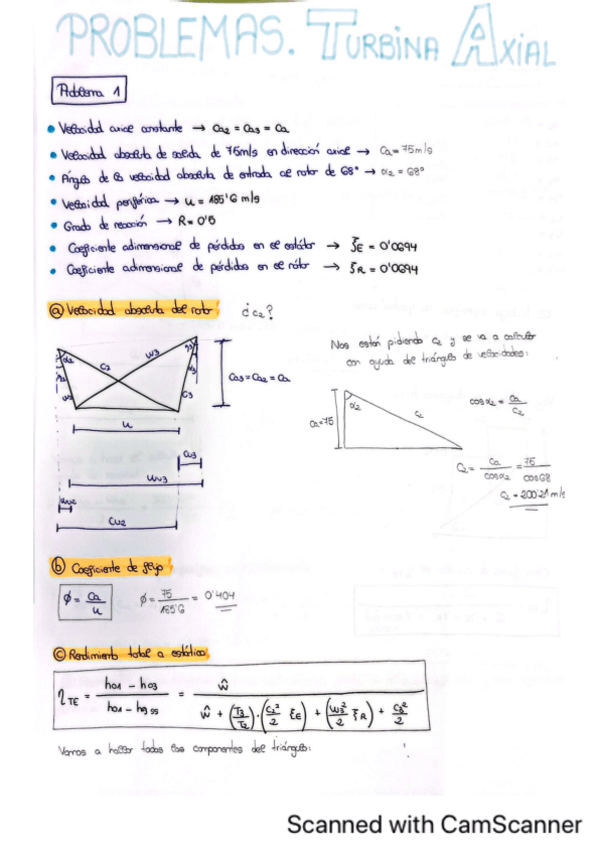 PROBLEMAS. TURBINA AXIAL
Problema 1
• Velocidad axial constante → Ca2 = Ca3 = Ca
• Velocidad absoluta de salida de 75m/s en dirección axial → Ca = 75m/s
• Ángulo de la velocidad absoluta de entrada al rotor de 68° → α2 = 68°
• Velocidad periférica → u = 185'6 m/s
• Grado de reacción → R = 0'5
• Coeficiente adimensional de pérdidas en el estátor → ξE = 0'0694
• Coeficiente adimensional de pérdidas en el rótor → ξR = 0'0694
a) Velocidad absoluta del rotor ¿c2?
Nos están pidiendo c2 y se va a calcular
con ayuda de triángulo de velocidades:
α2 C2 W3 C3 W2
Ca3 = Ca2 = Ca
u
Cu3
Wu3
Wu2
Cu2
Ca=75 α2 C2
cos α2 = Ca / C2
C2 = Ca / cosα2 = 75 / cos68
C2 = 200'21 m/s
b) Coeficiente de flujo
ϕ = Ca / u ϕ = 75 / 185'6 = 0'404
c) Rendimiento total a estático
ηTE = (h01 - h03) / (h01 - h3ss) = ŵ / (ŵ + (T3/T2)·(C2²/2 ξE) + (W3²/2 ξR) + C3²/2)
Vamos a hallar todas las componentes del triángulo:
Scanned with CamScanner